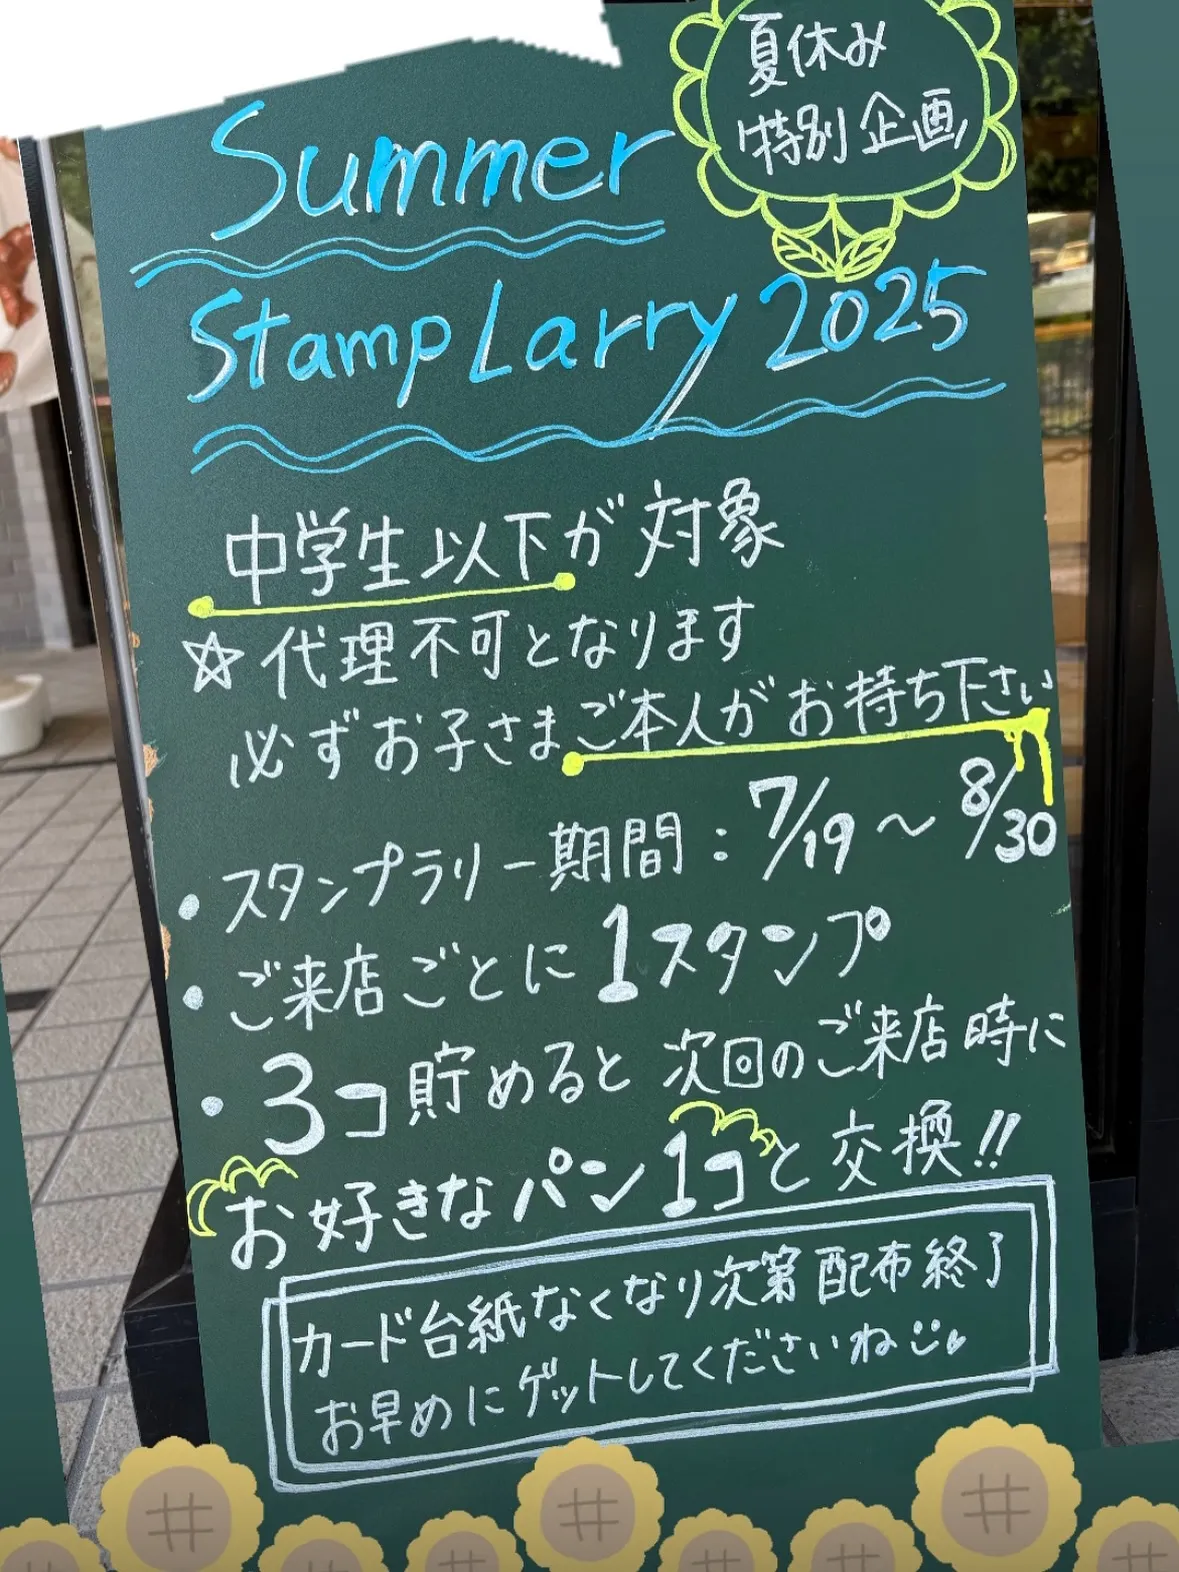 夏休み
特別企画
Summer
Stamp Larry 2025
中学生以下が対象
☆代理不可となります
必ずお子さまご本人がお持ち下さい
・スタンプラリー期間：7/19～8/30
・ご来店ごとに1スタンプ
・3コ貯めると次回のご来店時に
お好きなパン1コと交換!!
カード台紙なくなり次第配布終了
お早めにゲットしてくださいね